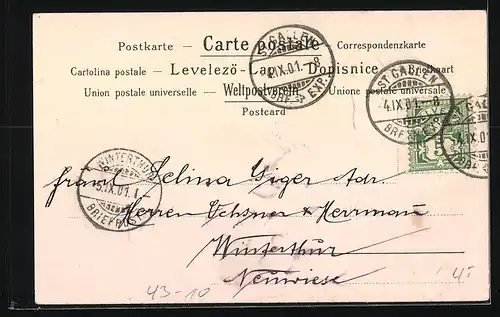 Postkarte – Carte postale – Correspondenzkarte
Cartolina postale – Levelező-Lap – Dopisnice – Briefkaart
Union postale universelle – Weltpostverein – Unione postale universale
Postcard
ST. GALLEN
4.IX.01. – 8
BRF. EXP.
ST. GALLEN
4.IX.01. – 8
BRF. EXP.
WINTERTHUR
5.IX.01. I
BRIEFPOST
Selina Giger Adr.
Herren Ochsner & Herrmau
Winterthur
Neuwiese
43-10